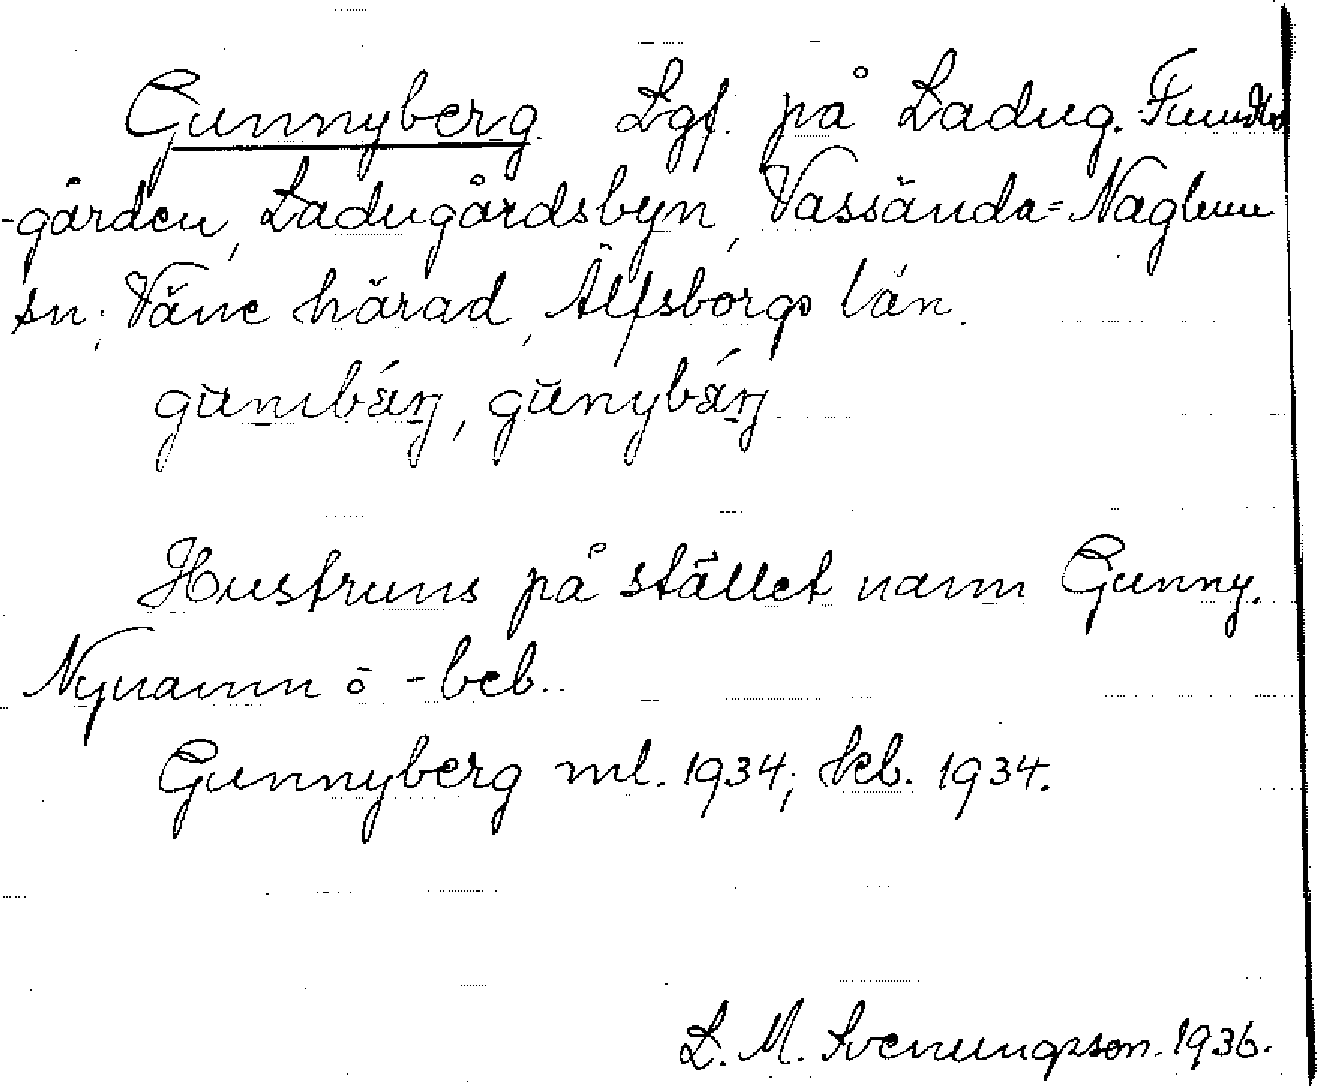 Gunnyberg. Lgf. på Ladug.
-gården, Ladugårdsbyn, Vassända=Naglum
sn; Väne härad, Älfsborgs län.
Hustruns på stället namn Gunny.
Nynamn o -beb.
Gunnyberg ml. 1934; skb. 1934.
L. M. Svenungsson. 1936.